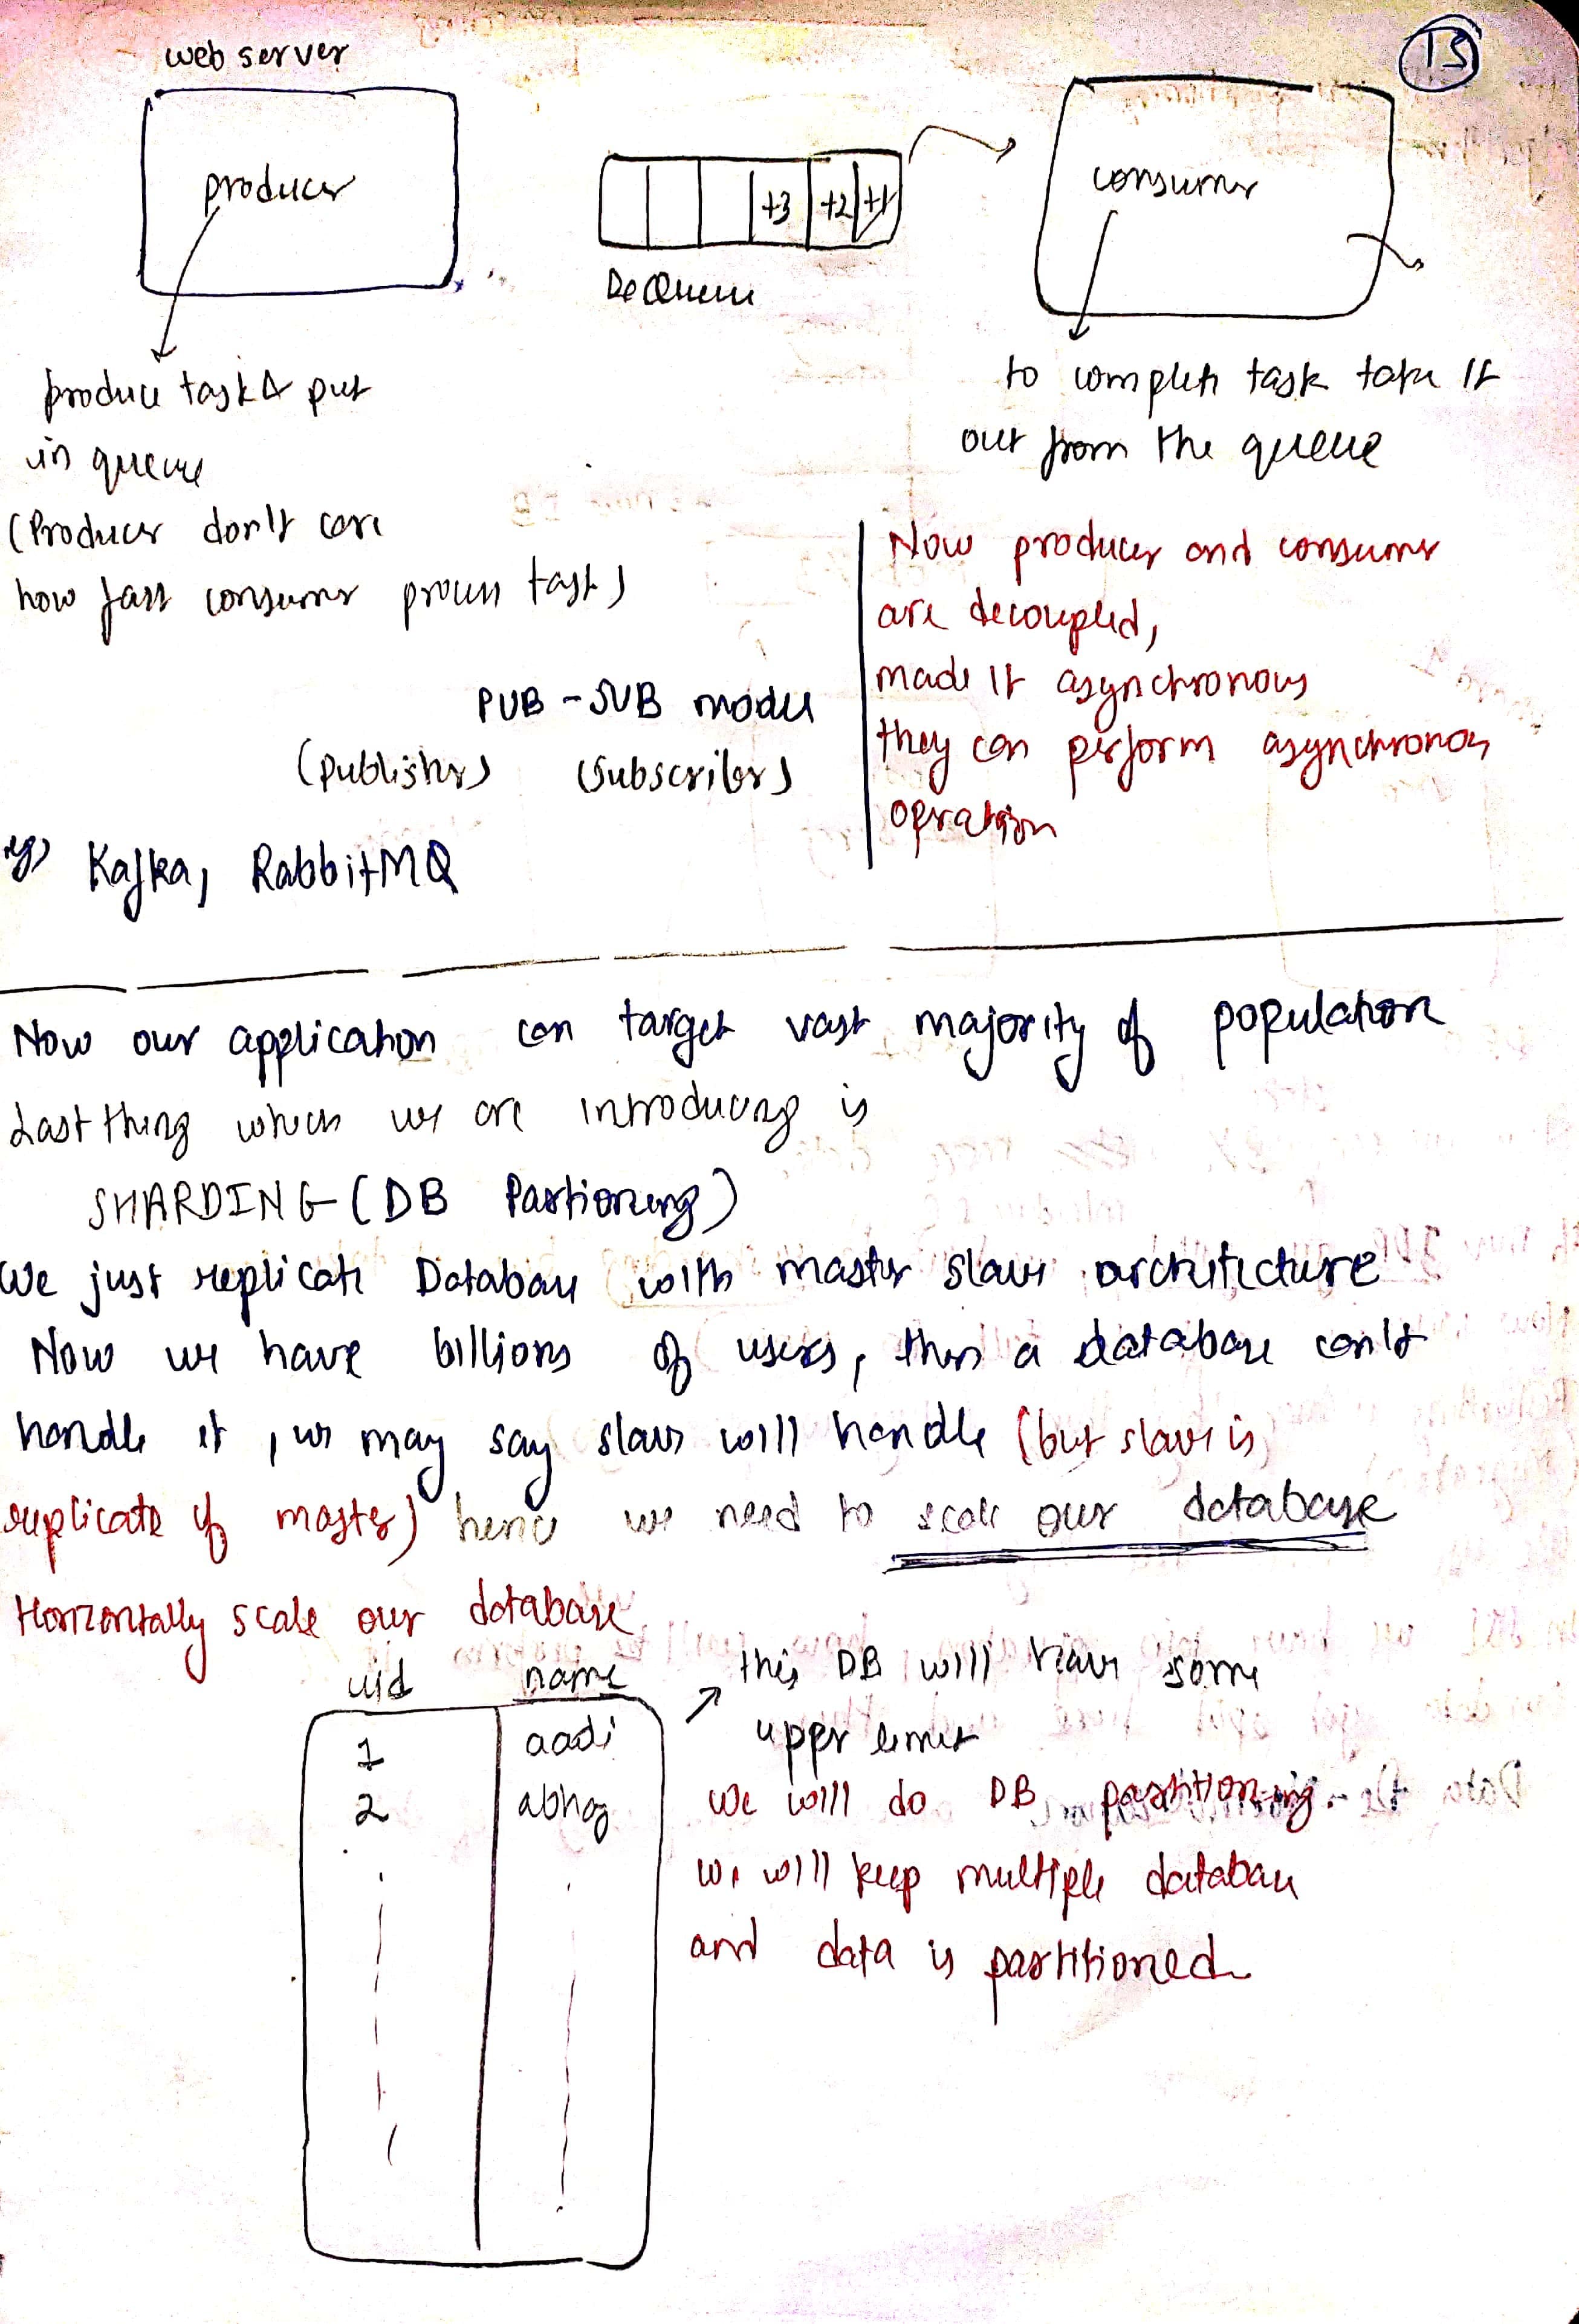 13
web server
producer
+3 +2 +1
DeQueue
consumer
produce task & put
in queue
(Producer don't care
how fast consumer process task)
to complete task take it
out from the queue
Now producer and consumer
are decoupled,
made it asynchronous
they can perform asynchronous
operation
PUB-SUB model
(publisher) (subscriber)
eg) Kafka, RabbitMQ
Now our application can target vast majority of population
Last thing which we are introducing is
SHARDING (DB Partioning)
We just replicate Database with master slave architecture
Now we have billions of users, then a database can't
handle it, we may say slave will handle (but slave is
replicate of master) hence we need to scale our database
Horizontally scale our database
uid name
1 aadi
2 abhay
this DB will have some
upper limit
We will do DB partitioning.
we will keep multiple database
and data is partitioned